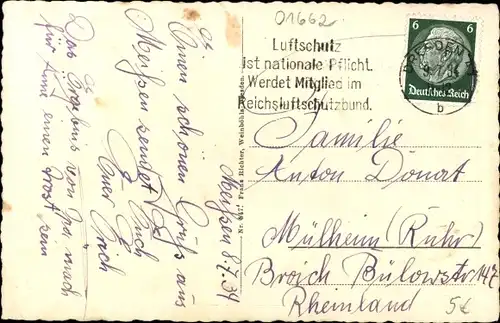 01662
Luftschutz
ist nationale Pflicht.
Werdet Mitglied im
Reichsluftschutzbund.
DRESDEN
b
6 6
Deutsches Reich
Meißen 8.7.34
Einen schönen Gruß aus
Meißen sendet Euch
Euer Erich
Das Ergebnis von Opa, mach
für Tine einen Prost sein
Franz Richter, Weinböhla
Familie
Anton Donart
Mülheim (Ruhr)
Broich Bülowstr 147
Rheinland